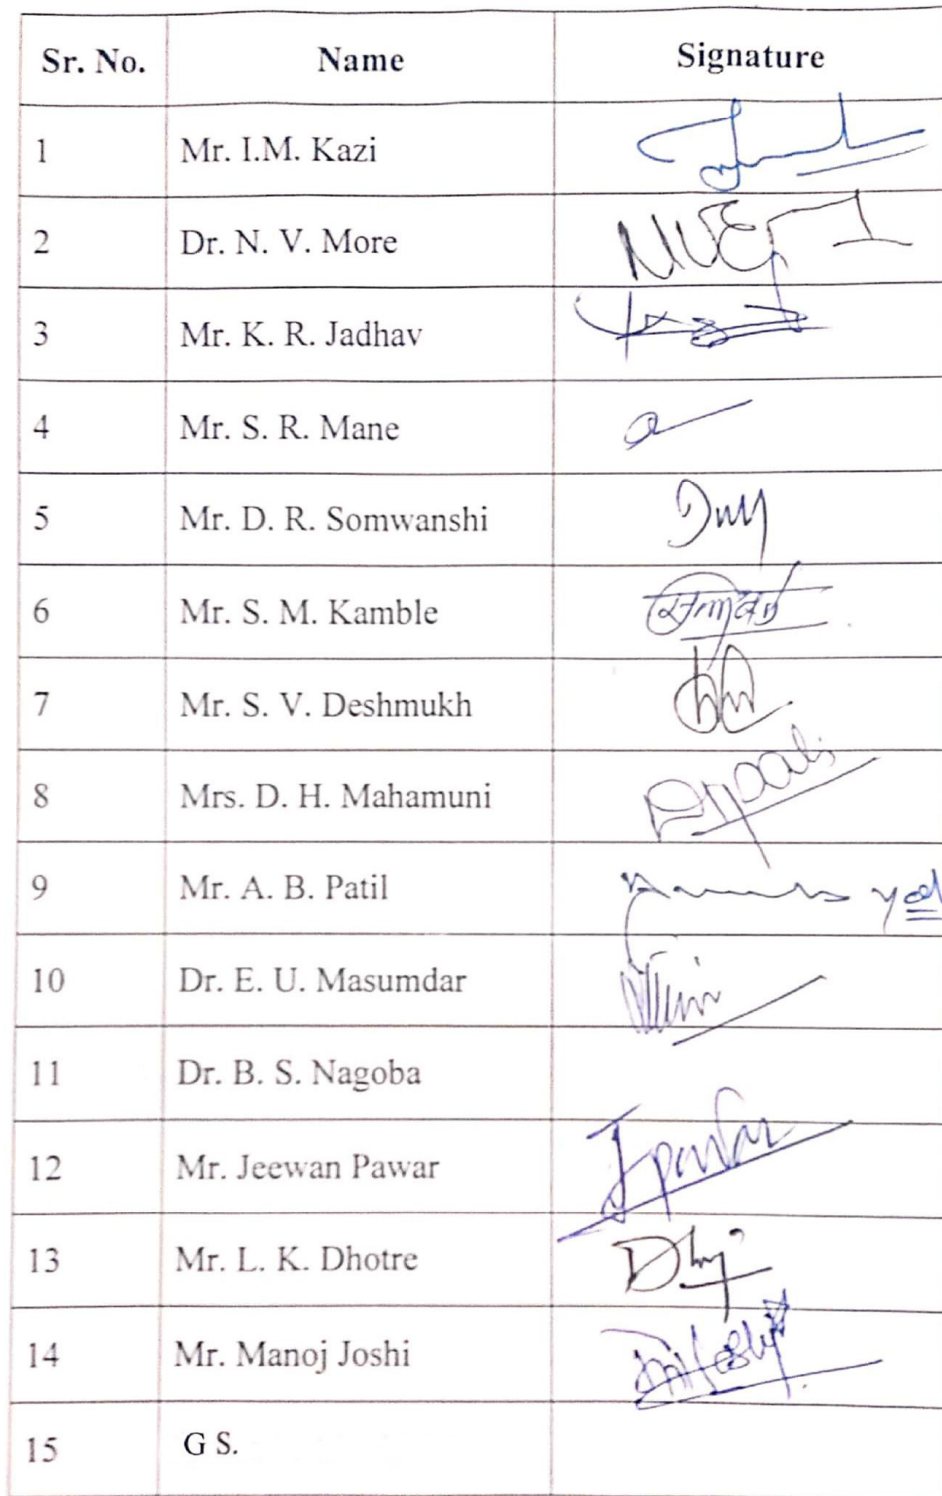 Sr. No. Name Signature
1 Mr. I.M. Kazi
2 Dr. N. V. More
3 Mr. K. R. Jadhav
4 Mr. S. R. Mane
5 Mr. D. R. Somwanshi
6 Mr. S. M. Kamble
7 Mr. S. V. Deshmukh
8 Mrs. D. H. Mahamuni
9 Mr. A. B. Patil
10 Dr. E. U. Masumdar
11 Dr. B. S. Nagoba
12 Mr. Jeewan Pawar
13 Mr. L. K. Dhotre
14 Mr. Manoj Joshi
15 G S.